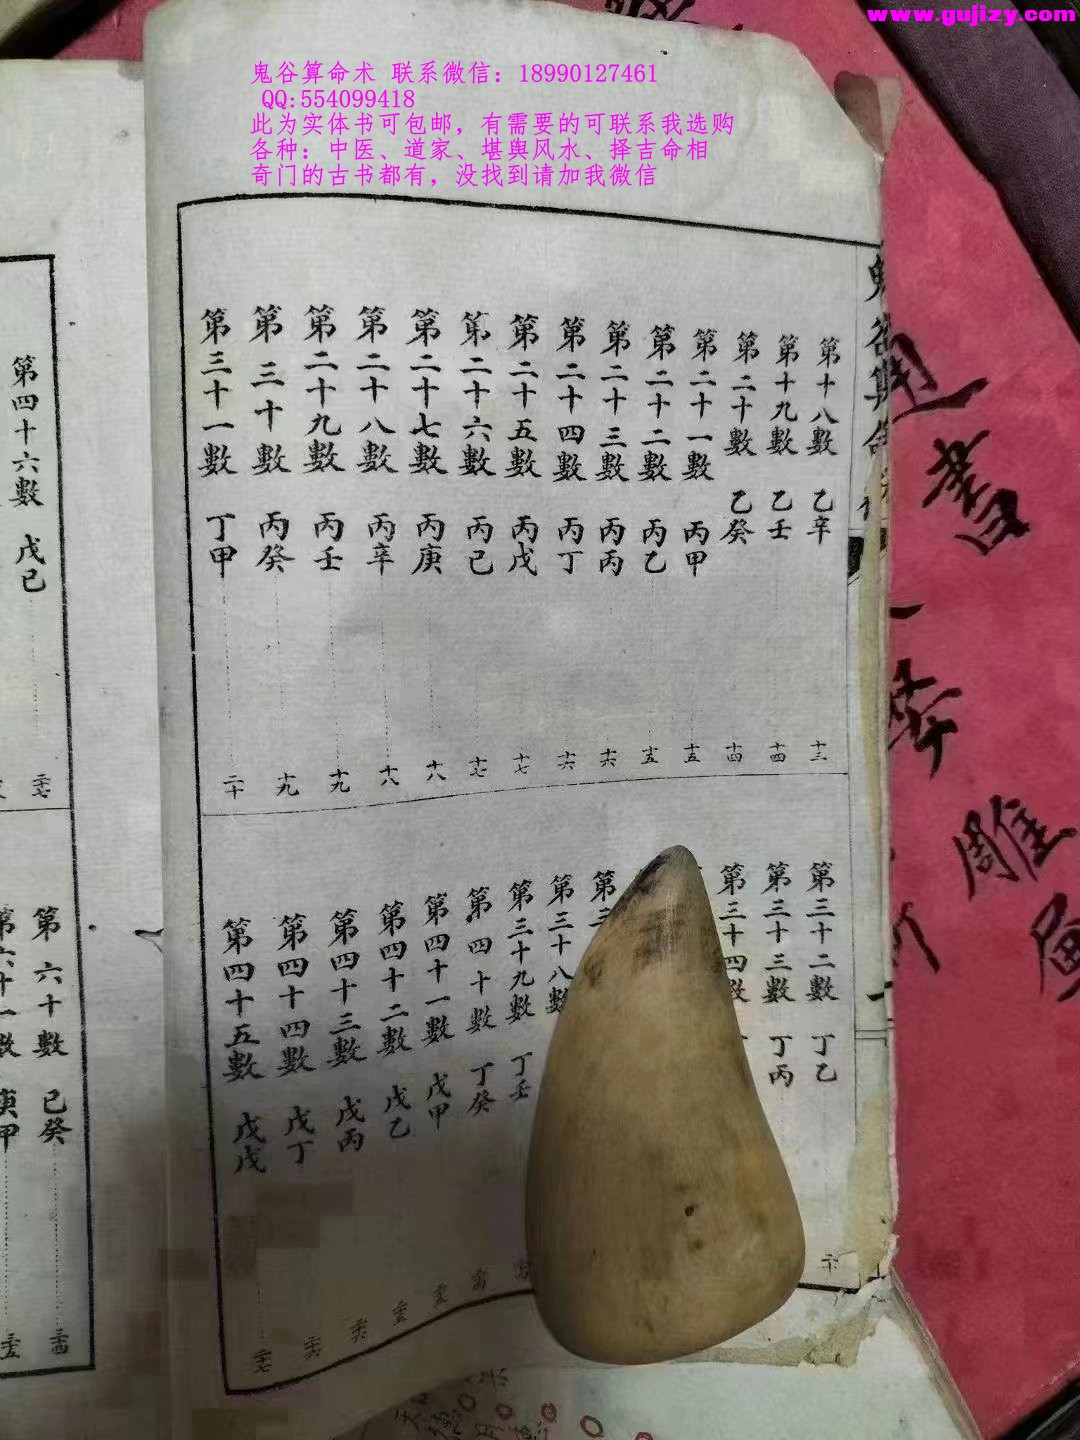 www.gujizy.com
鬼谷算命术 联系微信：18990127461
QQ:554099418
此为实体书可包邮，有需要的可联系我选购
各种：中医、道家、堪舆风水、择吉命相
奇门的古书都有，没找到请加我微信
第十八數 乙辛 十三
第十九數 乙壬 十四
第二十數 乙癸 十四
第二十一數 丙甲 十五
第二十二數 丙乙 十五
第二十三數 丙丙 十六
第二十四數 丙丁 十六
第二十五數 丙戊 十七
第二十六數 丙己 十七
第二十七數 丙庚 十八
第二十八數 丙辛 十八
第二十九數 丙壬 十九
第三十數 丙癸 十九
第三十一數 丁甲 二十
第三十二數 丁乙 二十
第三十三數 丁丙
第三十四數
第三
第三十八數
第三十九數 丁壬
第四十數 丁癸 二十四
第四十一數 戊甲 二十五
第四十二數 戊乙 二十五
第四十三數 戊丙 二十六
第四十四數 戊丁 二十六
第四十五數 戊戊 二十七
第四十六數 戊己 二十七
第六十數 己癸 三十四
第六十一數 庚甲 三十五
書
雕